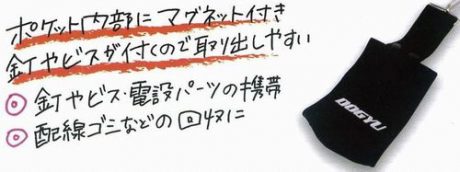 ポケット内部にマグネット付き
釘やビスが付くので取り出しやすい
◎釘やビス・電設パーツの携帯
◎配線ゴミなどの回収に
DOGYU